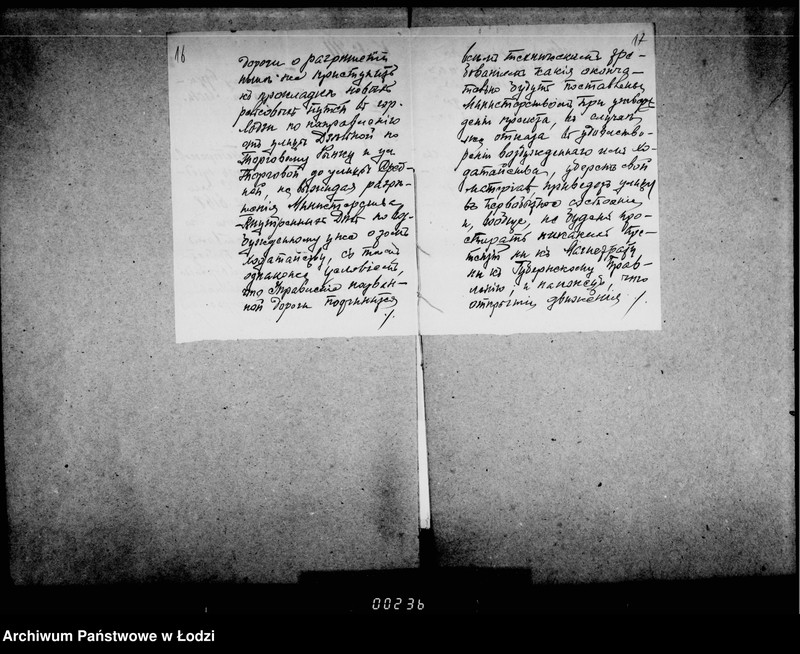 16
дороги о разрѣшеніи
нынѣ же приступить
къ прокладкѣ новыхъ
рельсовыхъ путей въ гор.
Лодзи по направленію
отъ улицы Дѣльной по
Торговому Рынку и ул.
Торговой до улицы Сред-
ней, не выжидая разрѣ-
шенія Министерства
Внутреннихъ Дѣлъ по воз-
бужденному уже о томъ
ходатайству, съ тѣмъ
однако условіемъ,
что Правленіе назван-
ной дороги подчинится
./.
17
всѣмъ техническимъ тре-
бованіямъ какія оконча-
тельно будутъ поставлены
Министерствомъ при утверж-
деніи проекта, въ случаѣ
же отказа въ удовлетво-
реніи возбужденнаго ими хо-
датайства, уберетъ свой
матеріалъ, приведетъ улицу
въ первобытное состояніе
и, вообще, не будетъ про-
стирать никакихъ пре-
тензій ни къ Магистрату
ни къ Губернскому Прав-
ленію, и наконецъ, что
открытія движенія ./.
00236
Archiwum Państwowe w Łodzi